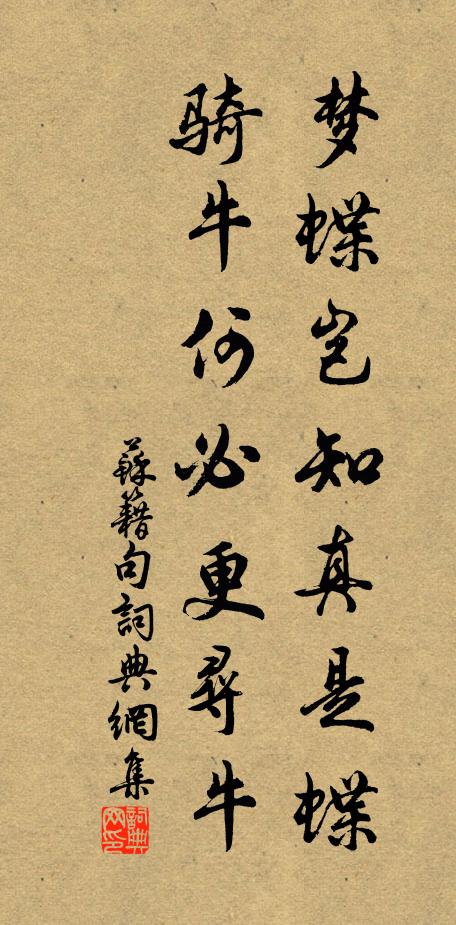 梦蝶岂知真是蝶
骑牛何必更寻牛
蘇籍句詞典網集
詞典网印